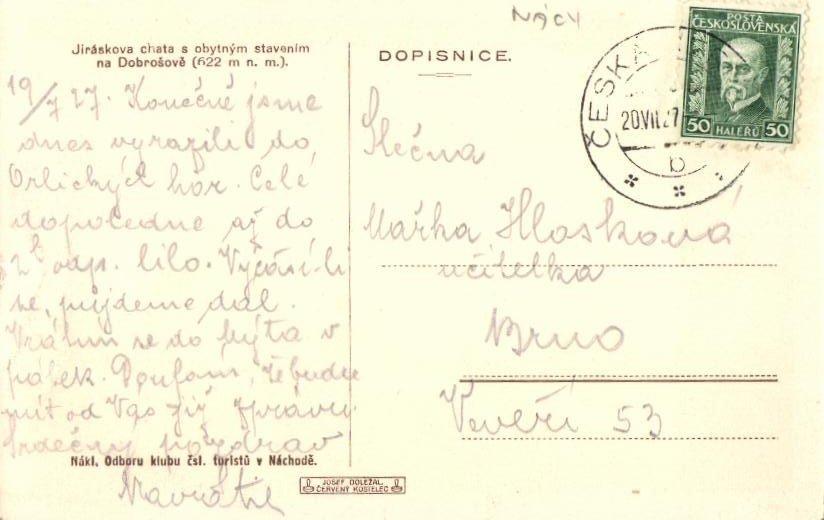 NÁCH
Jiráskova chata s obytným stavením
na Dobrošově (622 m n. m.).
DOPISNICE.
POSTA
ČESKOSLOVENSKÁ
50 HALÉŘŮ 50
ČESKÁ
20.VII.27
b
19/7 27. Konečně jsme
dnes vyrazili do
Orlických hor. Celé
dopoledne až do
2h odp. lilo. Vyčasí-li
se, pujdeme dál.
Vrátím se do Mýta v
pátek. Doufám, že budu
mít od Vás již zprávu.
Srdečný pozdrav
Navrátil
Slečna
Mařka Hlosková
učitelka
Brno
Veveří 53
Nákl. Odboru klubu čsl. turistů v Náchodě.
JOSEF DOLEŽAL
ČERVENÝ KOSTELEC